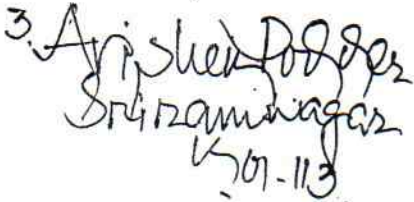 3. Avishek Podder
Sriramnagar
Kol-113